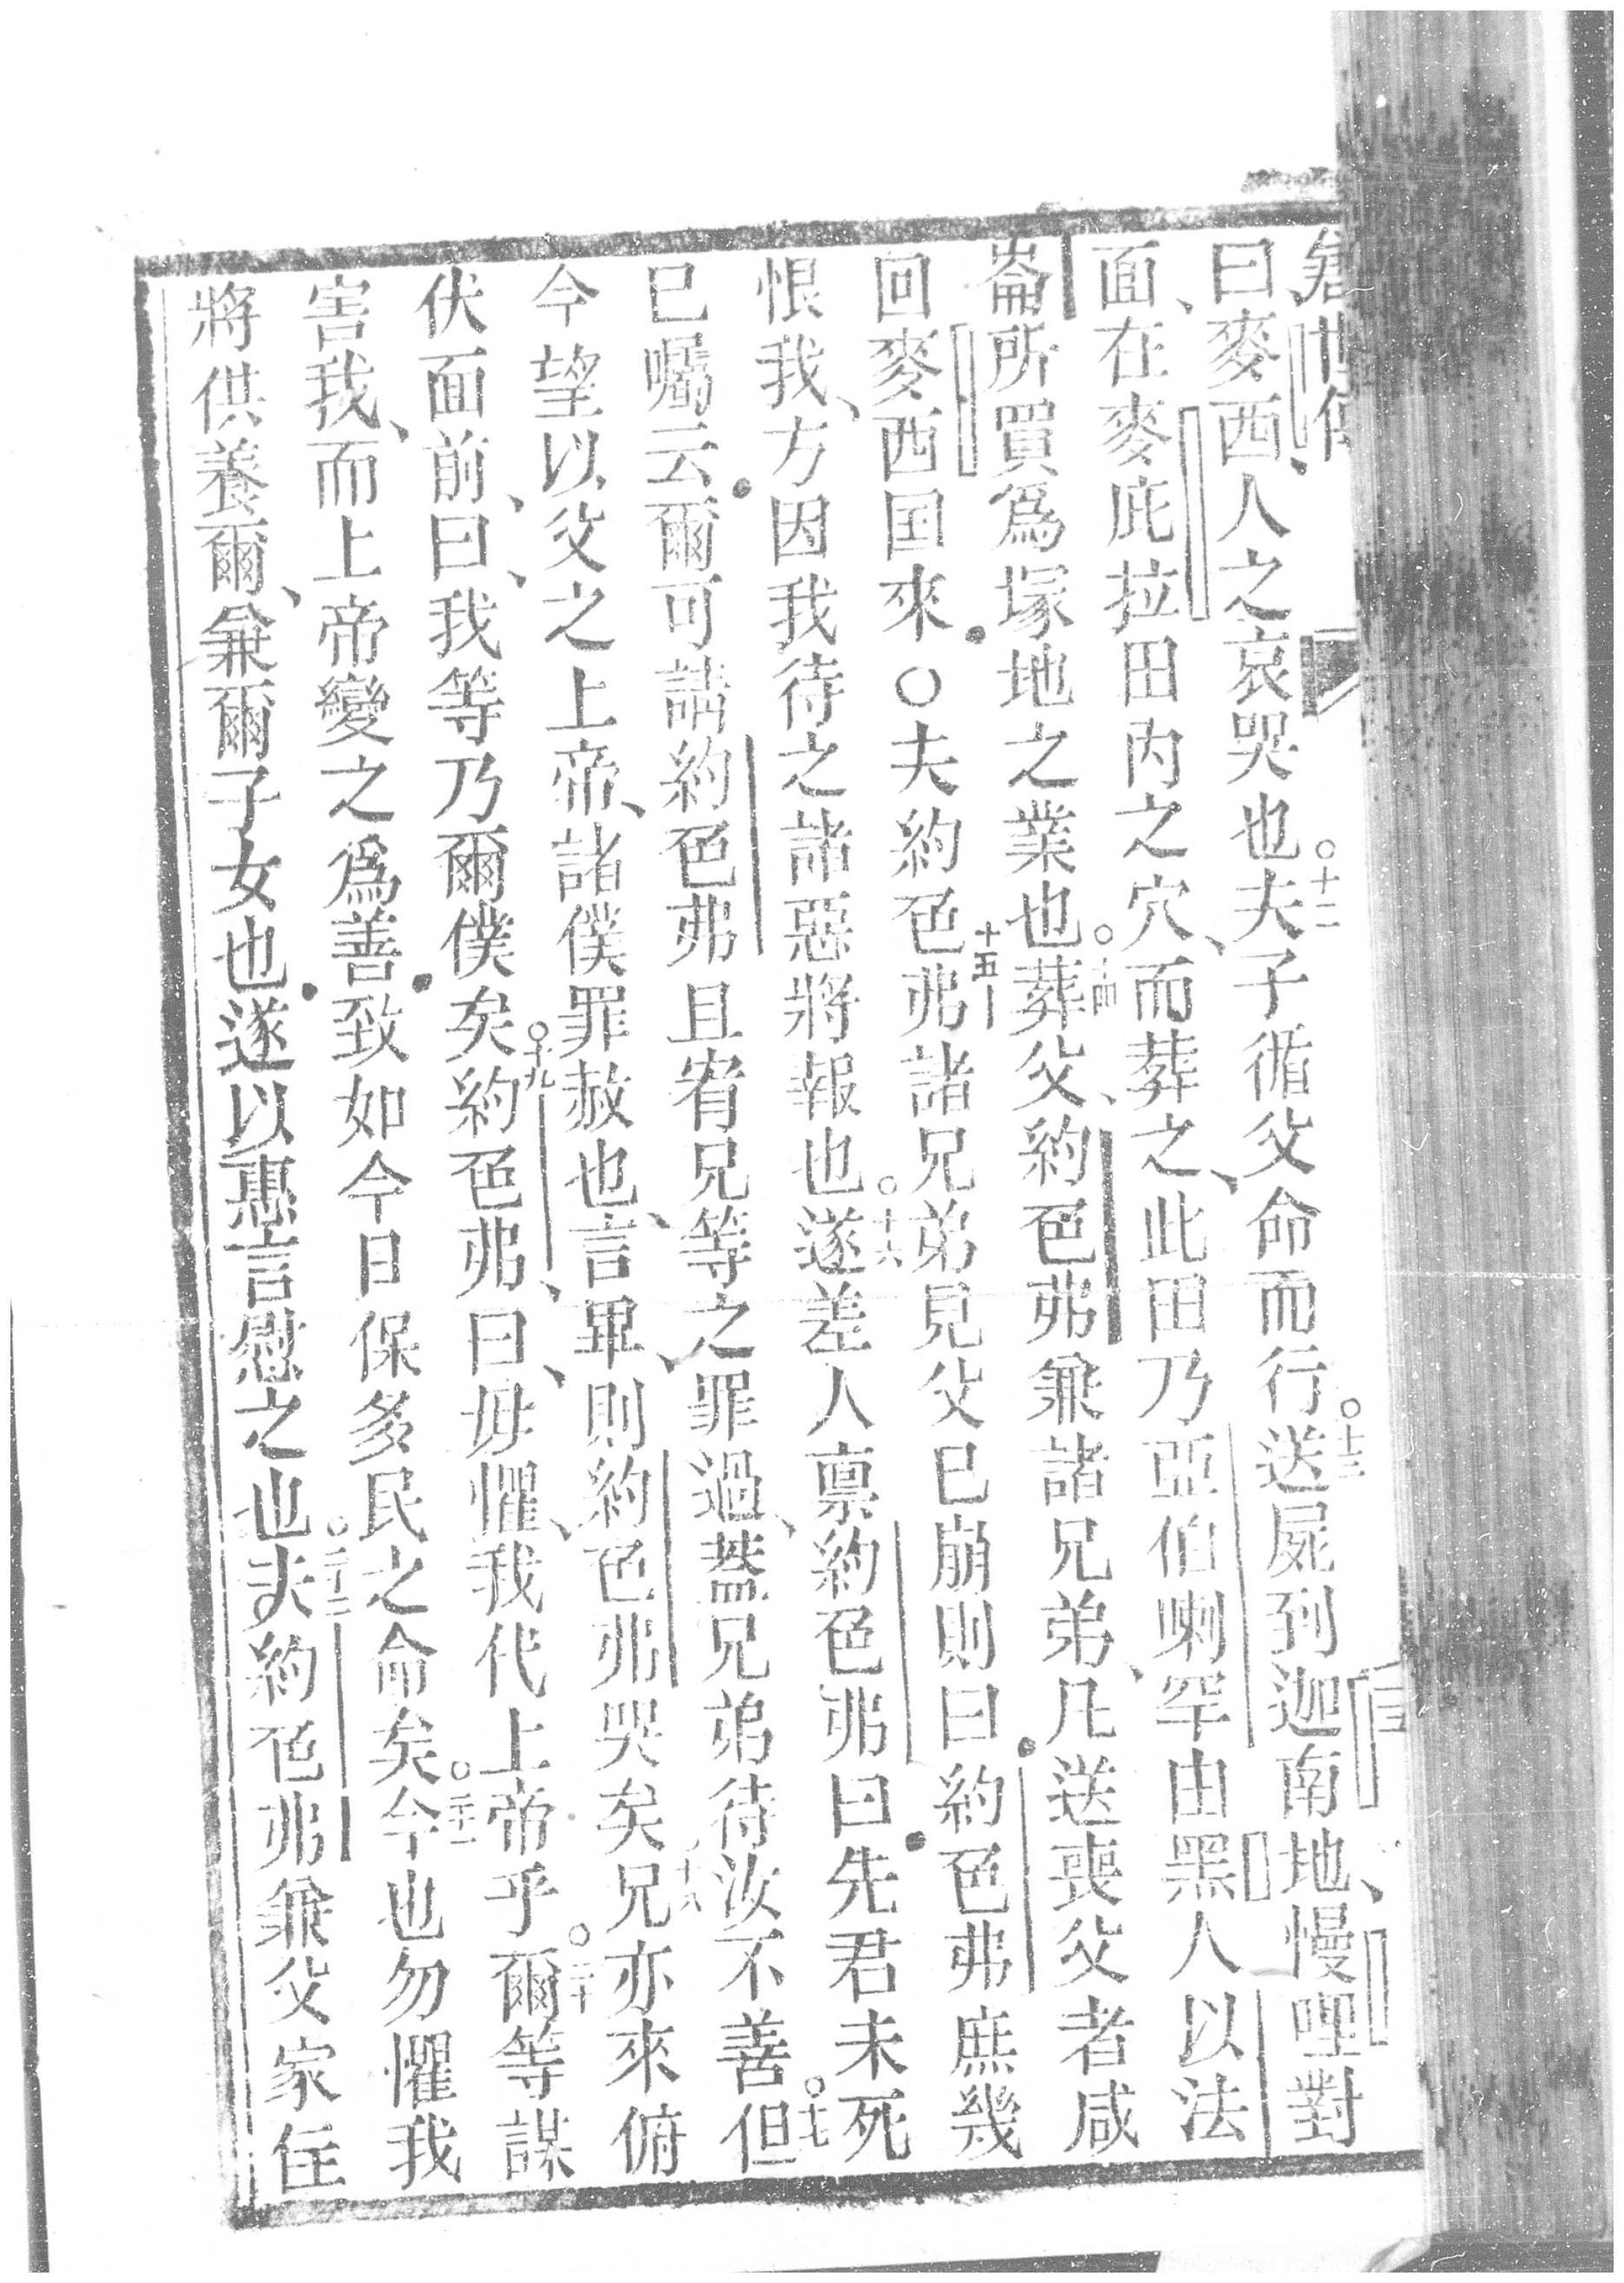 曰麥西、人之哀哭也○十二夫子循父命而行○十三送屍到迦南地、慢哩對
面、在麥庇拉田內之穴、而葬之、此田乃亞伯喇罕由黑人以法
崙所買爲塚地之業也○十四葬父、約色弗兼諸兄弟、凡送喪父者咸
回麥西国來●○夫約色弗十五諸兄弟見父已崩則曰●約色弗庶幾
恨我、方因我待之諸惡將報也○十六遂差人禀約色弗曰●先君未死
已囑云●爾可請約色弗且宥兄等之罪過、蓋兄弟待汝不善○十七但
今望以父之上帝、諸僕罪赦也、言畢、則約色弗哭矣十八兄亦來俯
伏面前、曰、我等乃爾僕矣○十九約色弗、曰、毋懼、我代上帝乎○二十爾等謀
害我、而上帝變之爲善●致如今日保多民之命矣○二十一今也勿懼我
將供養爾、兼爾子女也●遂以惠言慰之也○二十二夫約色弗兼父家住